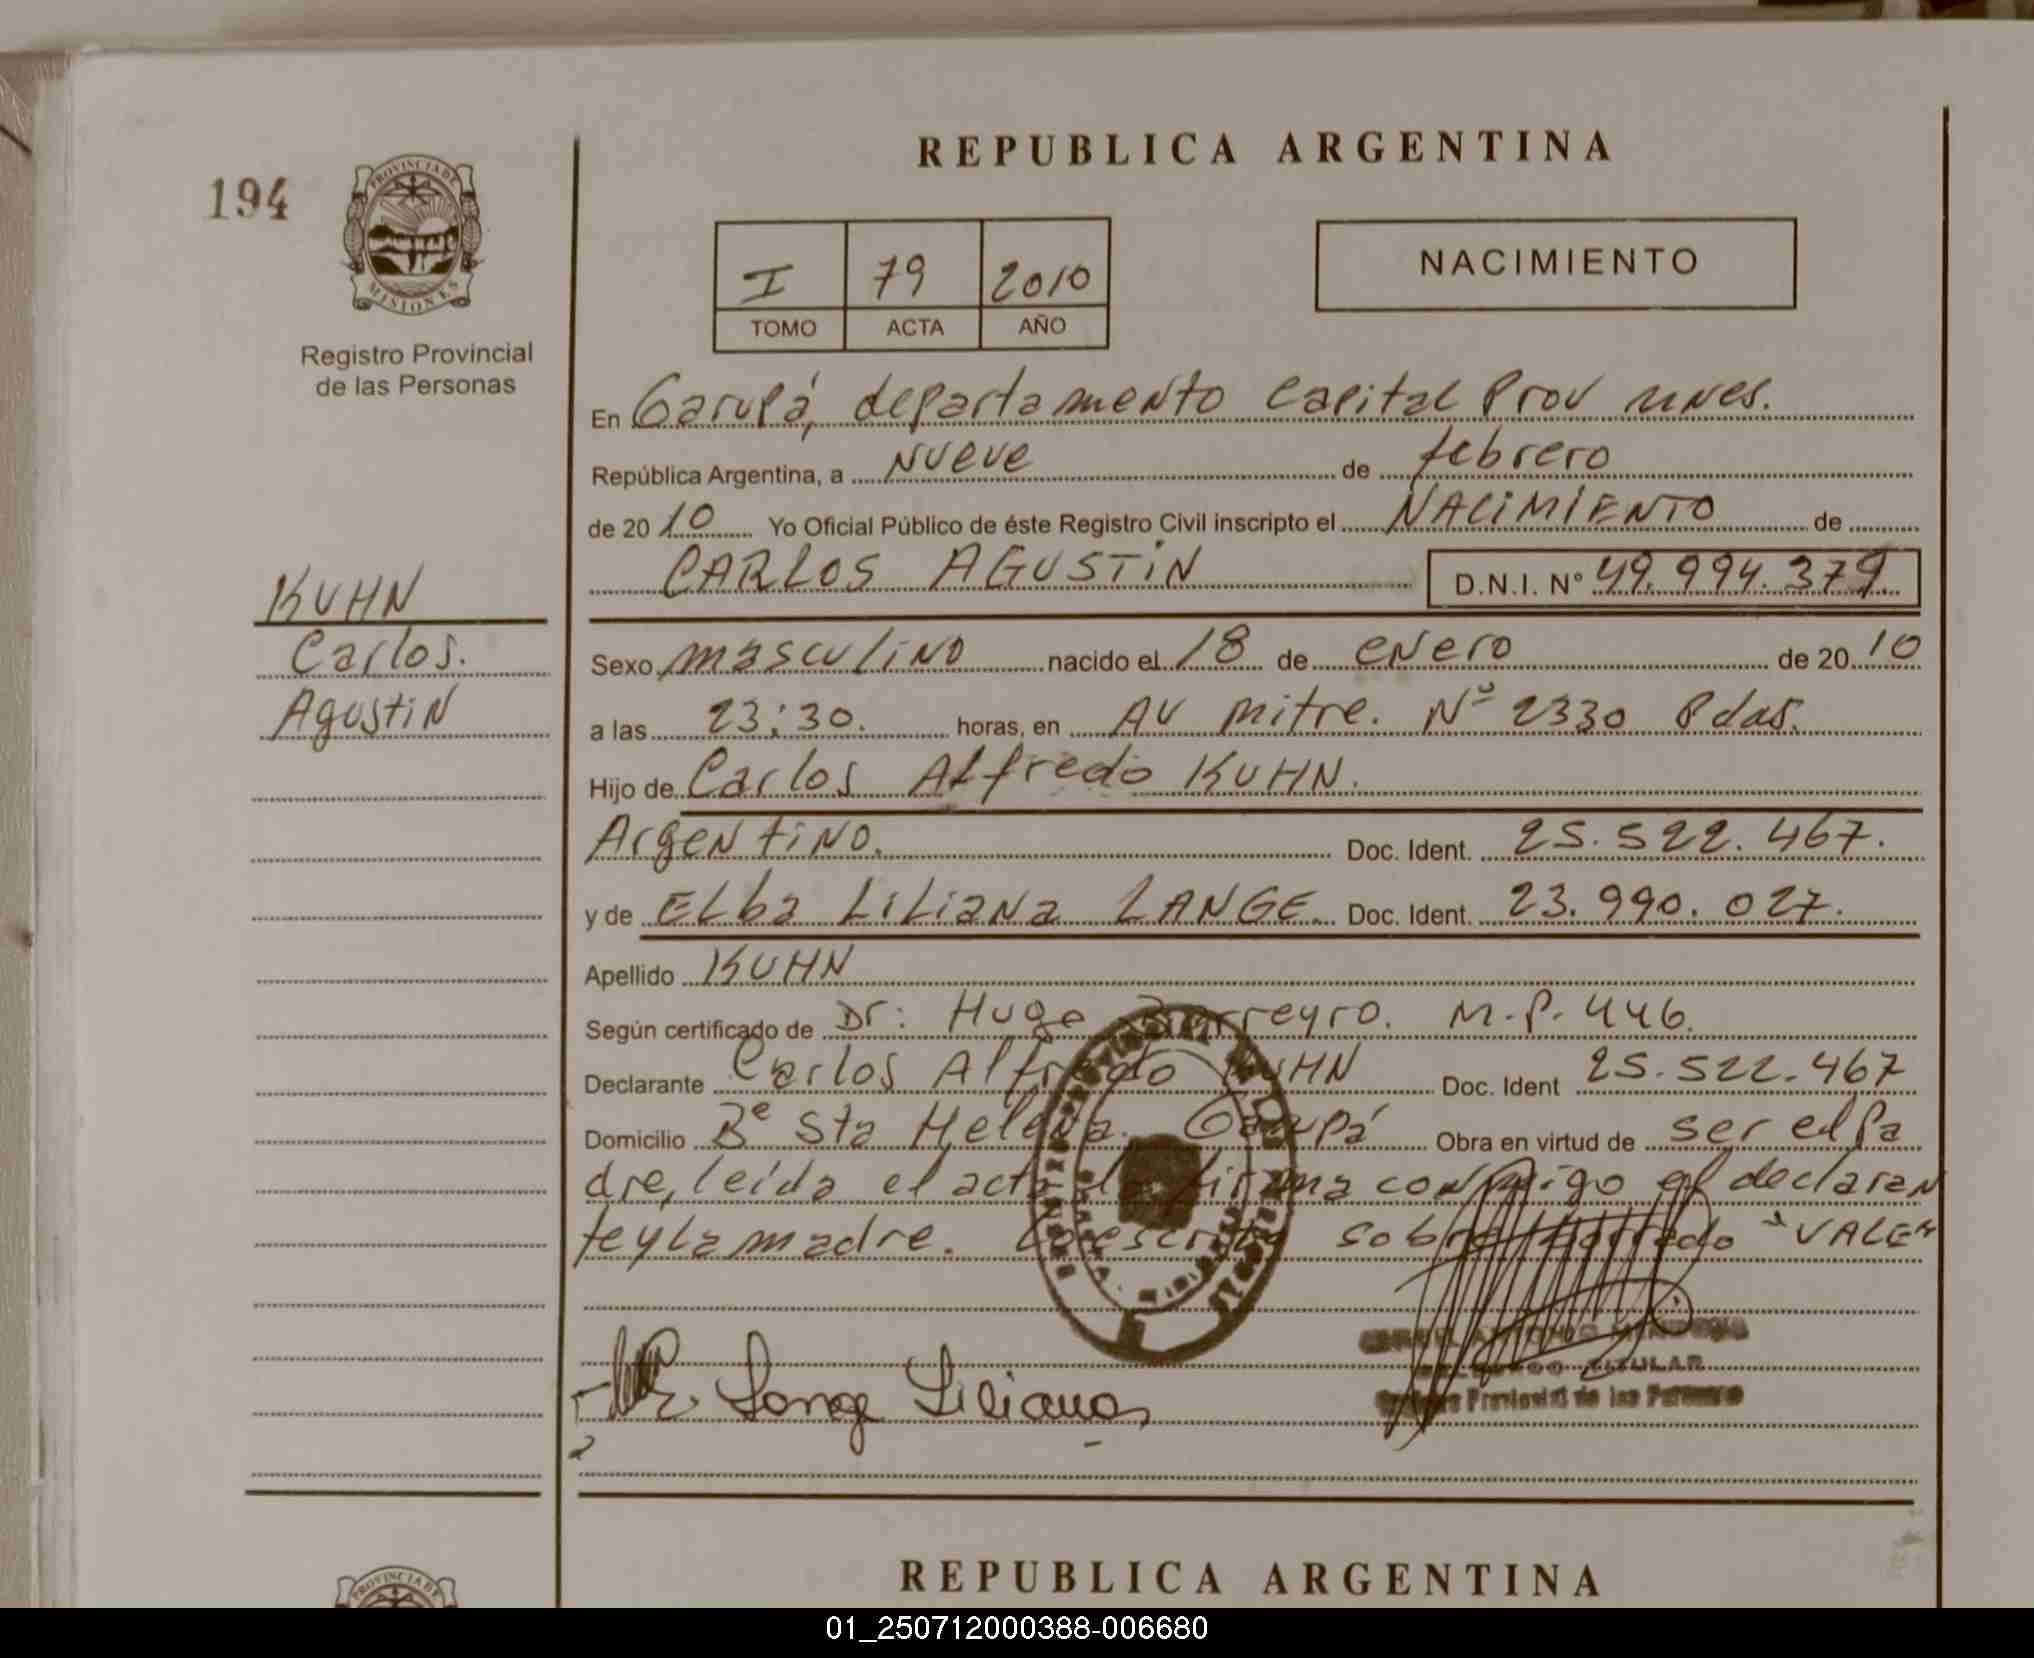 REPUBLICA ARGENTINA
194
PROVINCIA DE
MISIONES
Registro Provincial
de las Personas
I 79 2010
TOMO ACTA AÑO
NACIMIENTO
En Garupá, departamento Capital Prov mnes.
República Argentina, a nueve de febrero
de 2010 Yo Oficial Público de éste Registro Civil inscripto el NACIMIENTO de
CARLOS AGUSTIN D.N.I. Nº 49.994.379
KUHN
Carlos.
Agustin
Sexo masculino nacido el 18 de enero de 2010
a las 23:30. horas, en AV mitre. Nº 2330 Pdas.
Hijo de Carlos Alfredo KUHN.
Argentino. Doc. Ident. 25.522.467.
y de Elba Liliana LANGE. Doc. Ident. 23.990.027.
Apellido KUHN
Según certificado de Dr: Hugo Barreyro. M.P. 446.
Declarante Carlos Alfredo KUHN Doc. Ident 25.522.467
Domicilio Bº Sta Helena. Garupá Obra en virtud de ser el Pa
dre, leída el acta la firma conmigo el declaran
te y la madre. Lo escrito sobre borrado "VALE"
TITULAR
Provincial de las Personas
Lange Liliana
REPUBLICA ARGENTINA
PROVINCIA DE
01_250712000388-006680